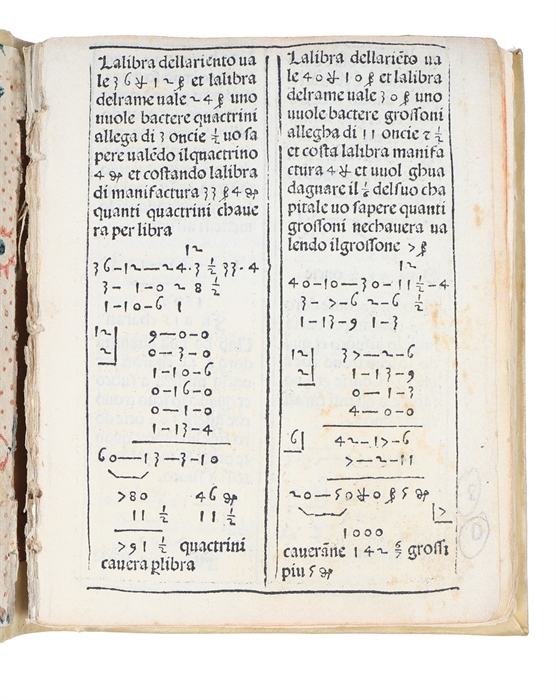 Lalibra dellariento ua
le 36 ₰ 12 ꝭ et lalibra
delrame uale 24 ꝭ uno
uuole bactere quactrini
allega di 3 oncie ½ uo sa
pere ualēdo ilquactrino
4 et costando lalibra
di manifactura 33 ꝭ 4
quanti quactrini chaue
ra per libra
12
36—12—24·3 ½ 33·4
3—1—0 2 8 ½
1—10—6 1
12 9—0—0
2 0—3—0
1—10—6
0—16—0
0—1—0
1—13—4
60—13—3—10
780 46
11 ½ 11 ½
791 ½ quactrini
cauera plibra
Lalibra dellariēto ua
le 40 ₰ 10 ꝭ et lalibra
delrame uale 30 ꝭ uno
uuole bactere grossoni
allegha di 11 oncie 2 ½
et costa lalibra manifa
ctura 4 ₰ et uuol ghua
dagnare il ⅙ del suo cha
pitale uo sapere quanti
grossoni nechauera ua
lendo ilgrossone 7 ꝭ
12
40—10—30—11—4
3—7—6 2—6 ½
1—13—9 1—3
12 37—2—6
2 1—13—9
0—1—3
4—0—0
6 42—17—6
7—2—11
20—50 ₰ 0 ꝭ 5
7
1000
caueranne 142 6/7 grossi
piu 5